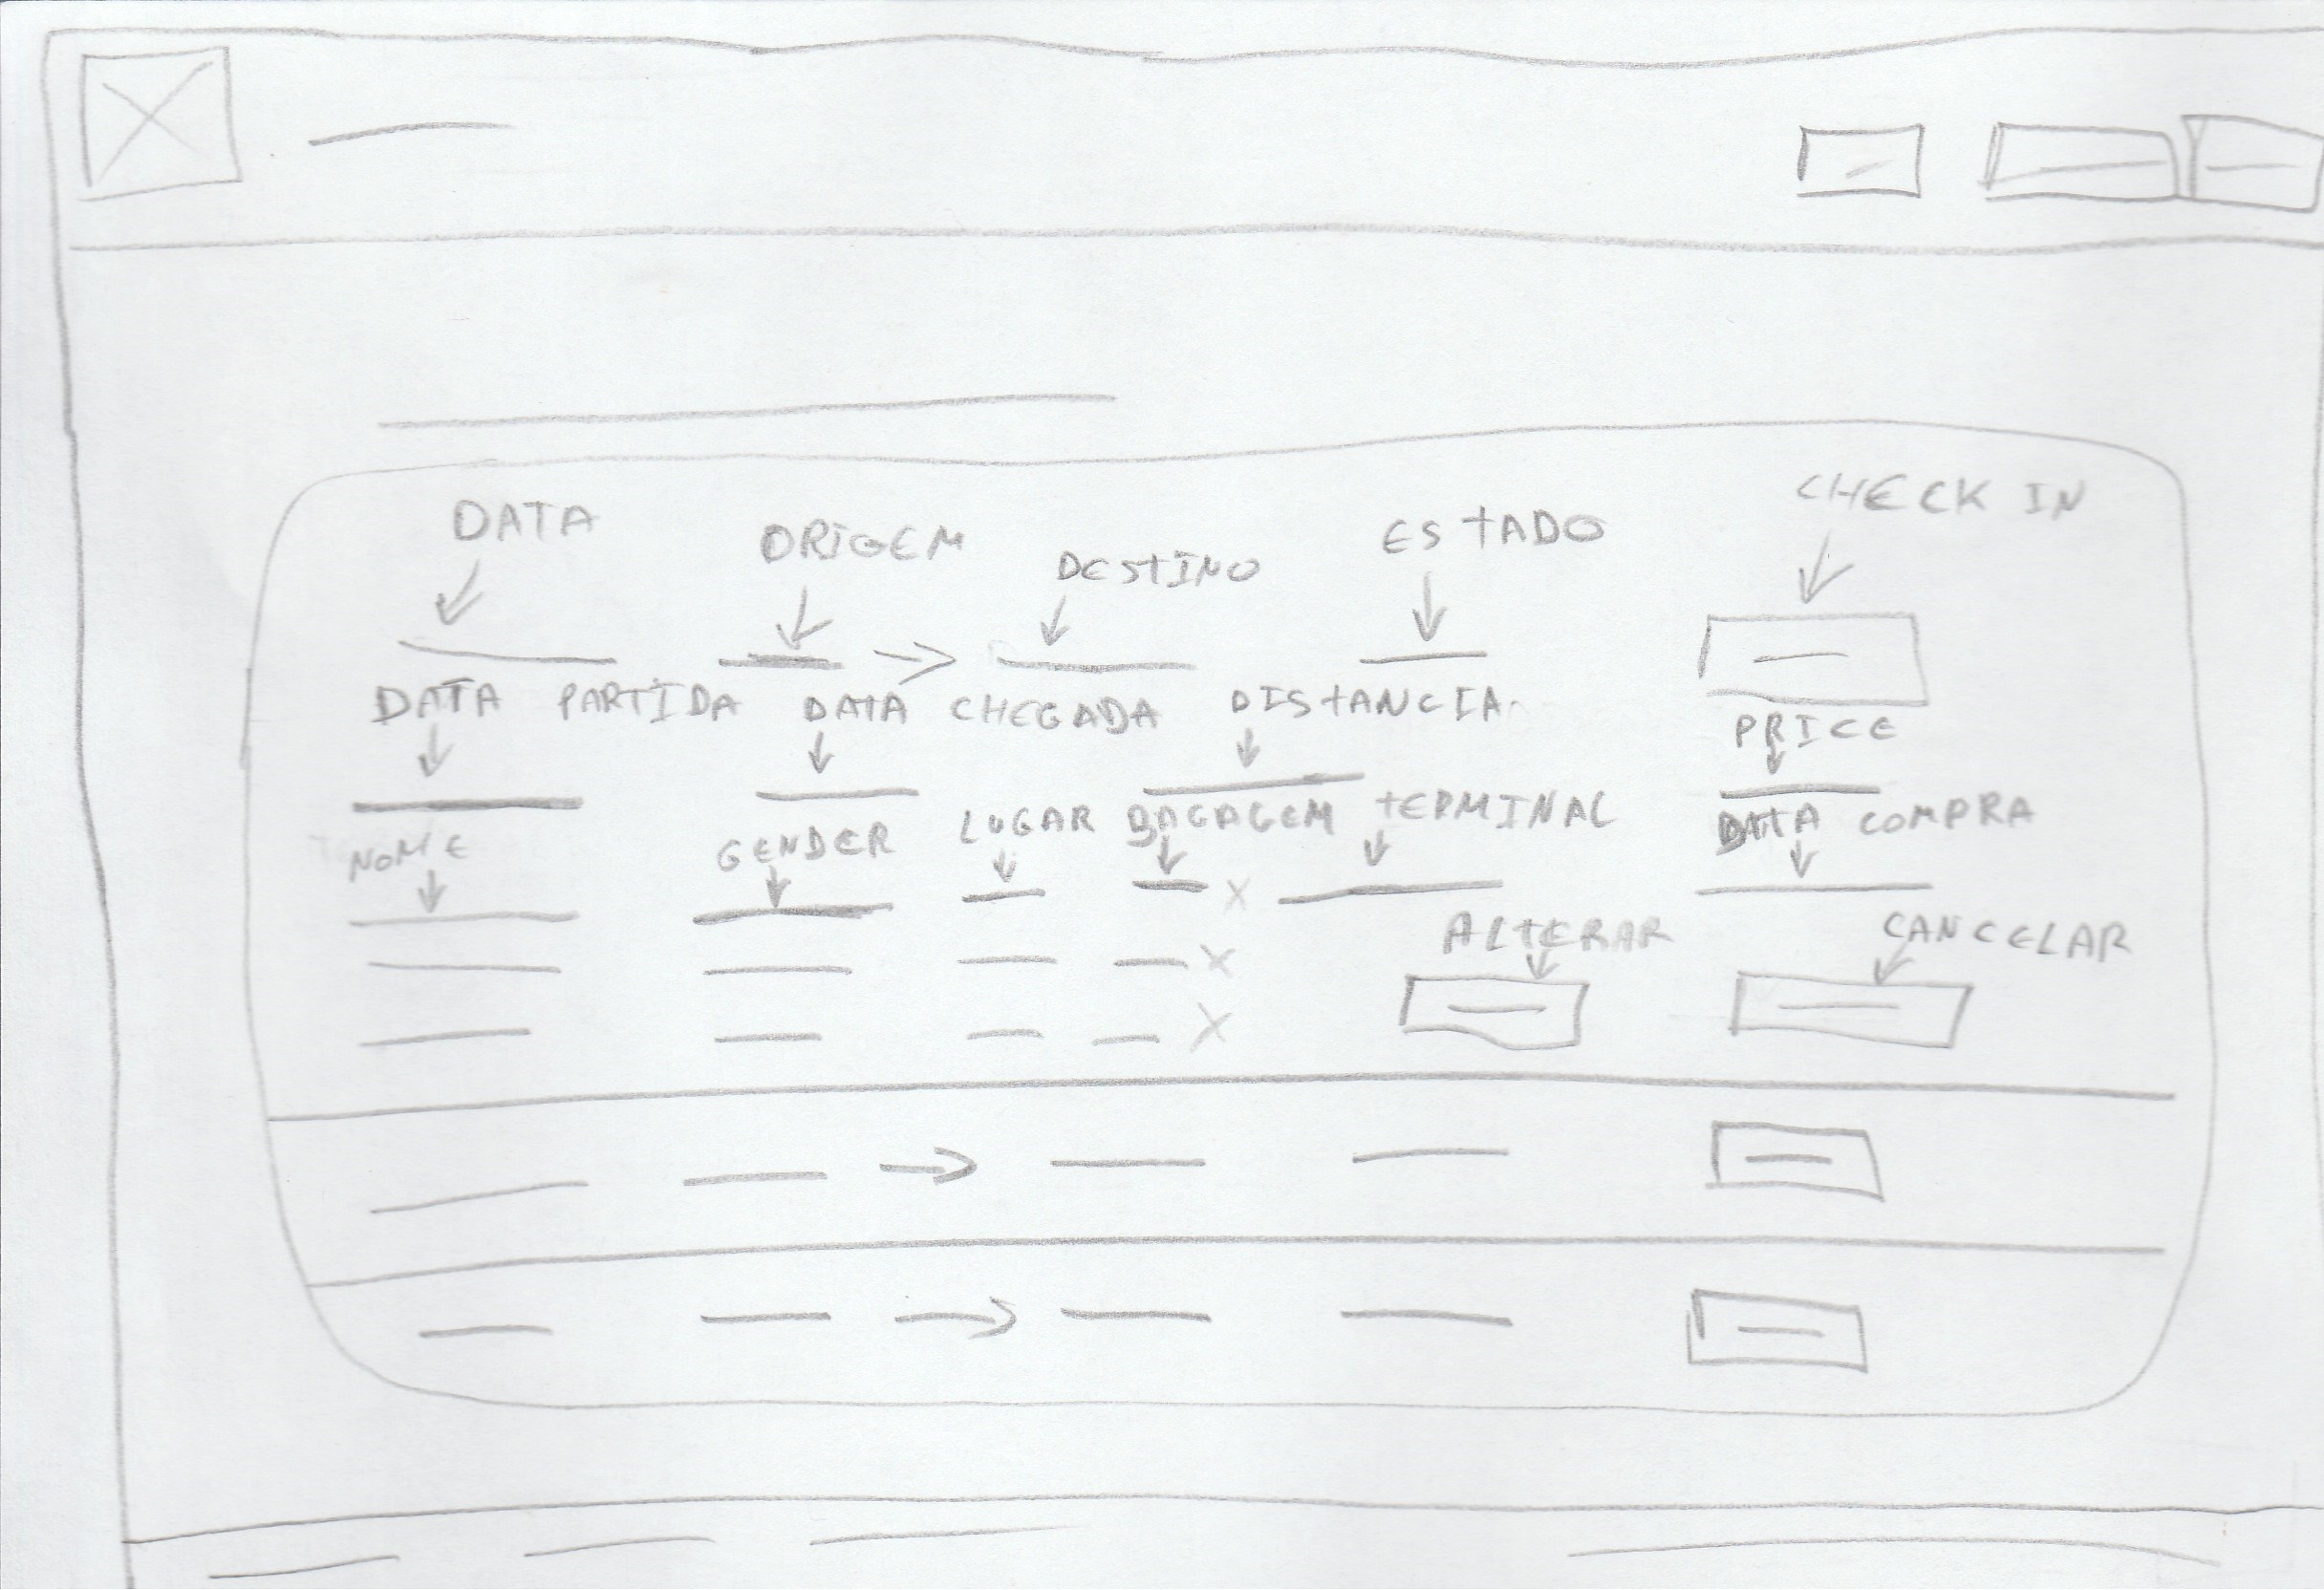 DATA ORIGEM DESTINO ESTADO CHECK IN
DATA PARTIDA DATA CHEGADA DISTANCIA PRICE
NOME GENDER LUGAR BAGAGEM TERMINAL DATA COMPRA
ALTERAR CANCELAR